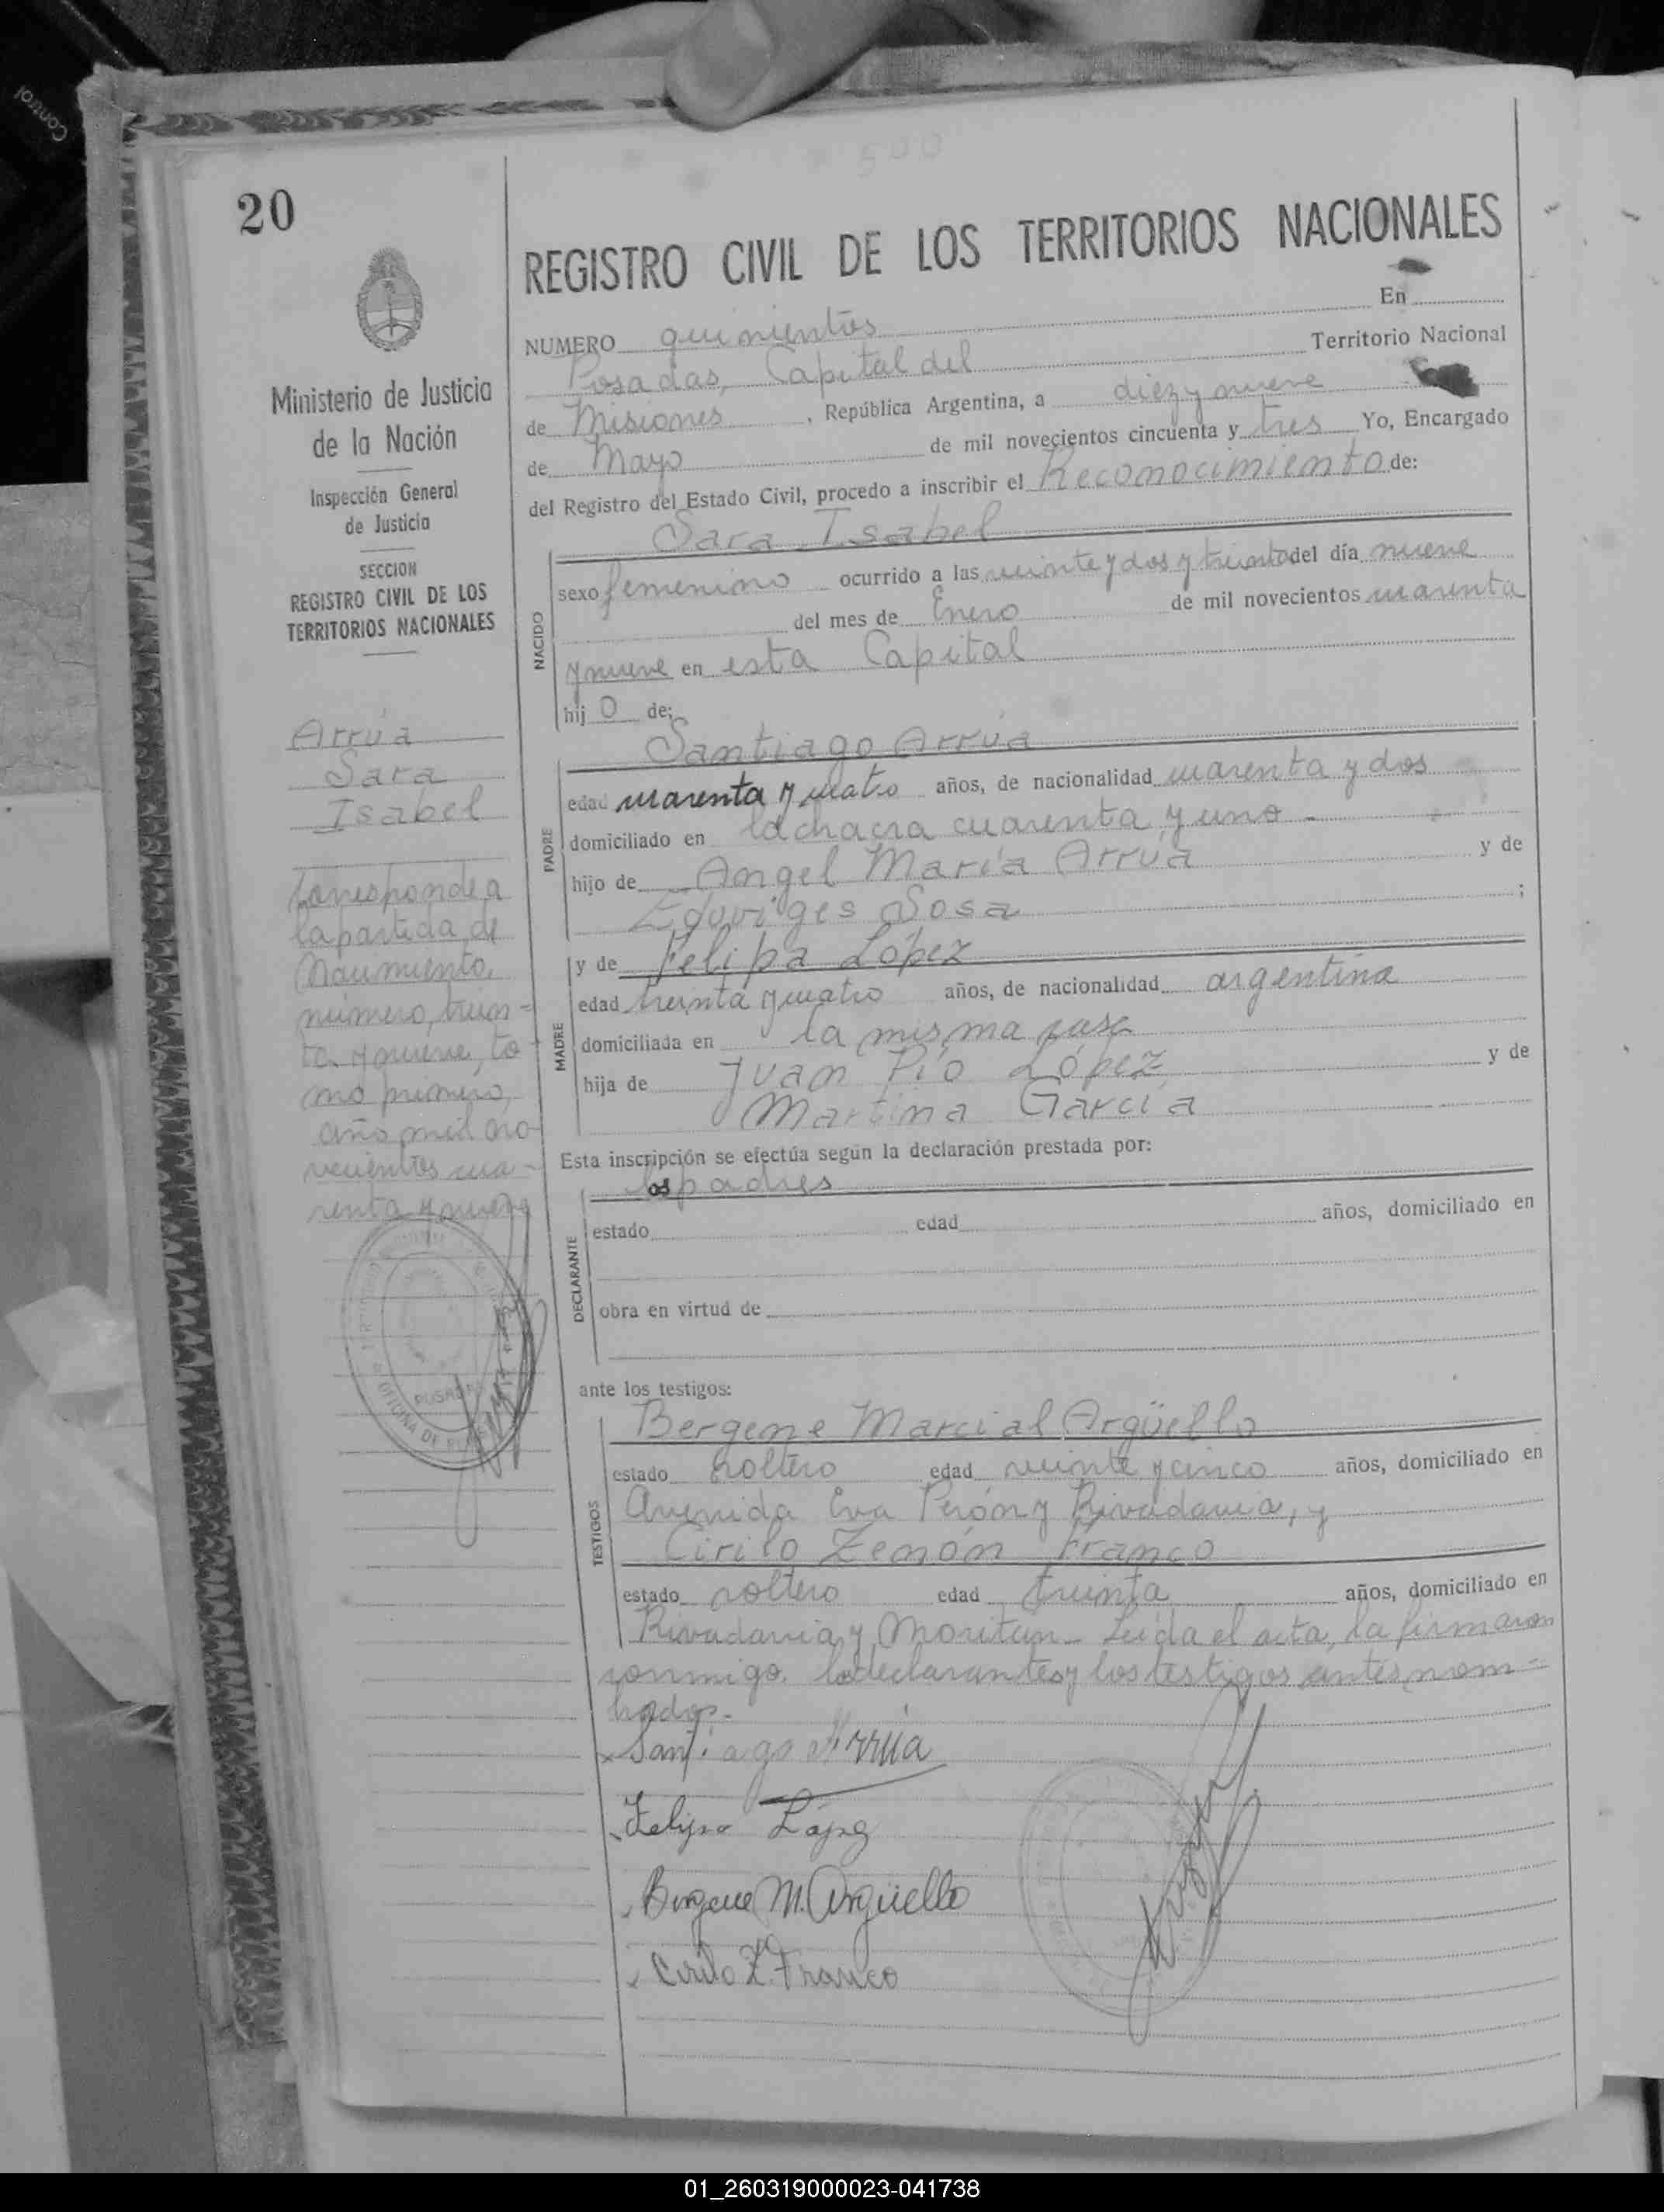 Control
500
20
REGISTRO CIVIL DE LOS TERRITORIOS NACIONALES
NUMERO quinientos En
Posadas, Capital del Territorio Nacional
de Misiones, República Argentina, a diez y nueve
de Mayo de mil novecientos cincuenta y tres Yo, Encargado
del Registro del Estado Civil, procedo a inscribir el Reconocimiento de:
Ministerio de Justicia
de la Nación
Inspección General
de Justicia
SECCION
REGISTRO CIVIL DE LOS
TERRITORIOS NACIONALES
Arrúa
Sara
Isabel
Corresponde a
la partida de
Nacimiento,
número, trein-
ta y nueve, to-
mo primero,
año mil no-
vecientos cua-
renta y nueve
POSADAS
OFICINA DE
NACIDO
Sara Isabel
sexo femenino ocurrido a las veinte y dos y treinta del día nueve
del mes de Enero de mil novecientos cuarenta
y nueve en esta Capital
hij o de:
PADRE
Santiago Arrúa
edad cuarenta y cuatro años, de nacionalidad cuarenta y dos
domiciliado en la chacra cuarenta y uno -
hijo de Angel María Arrúa y de
Eduviges Sosa ;
MADRE
y de Felipa López
edad treinta y cuatro años, de nacionalidad argentina
domiciliada en la misma casa
hija de Juan Pío López y de
Martina García
Esta inscripción se efectúa según la declaración prestada por:
DECLARANTE
los padres
estado edad años, domiciliado en
obra en virtud de
ante los testigos:
TESTIGOS
Bergene Marcial Argüello
estado soltero edad veinte y cinco años, domiciliado en
Avenida Eva Perón y Rivadavia, y
Cirilo Zenón Franco
estado soltero edad treinta años, domiciliado en
Rivadavia y Moritan - Leída el acta, la firmaron
conmigo, los declarantes y los testigos antes nom-
brados.-
Santiago Arrúa
Felipa López
Bergene M. Argüello
Cirilo Z. Franco
01_260319000023-041738